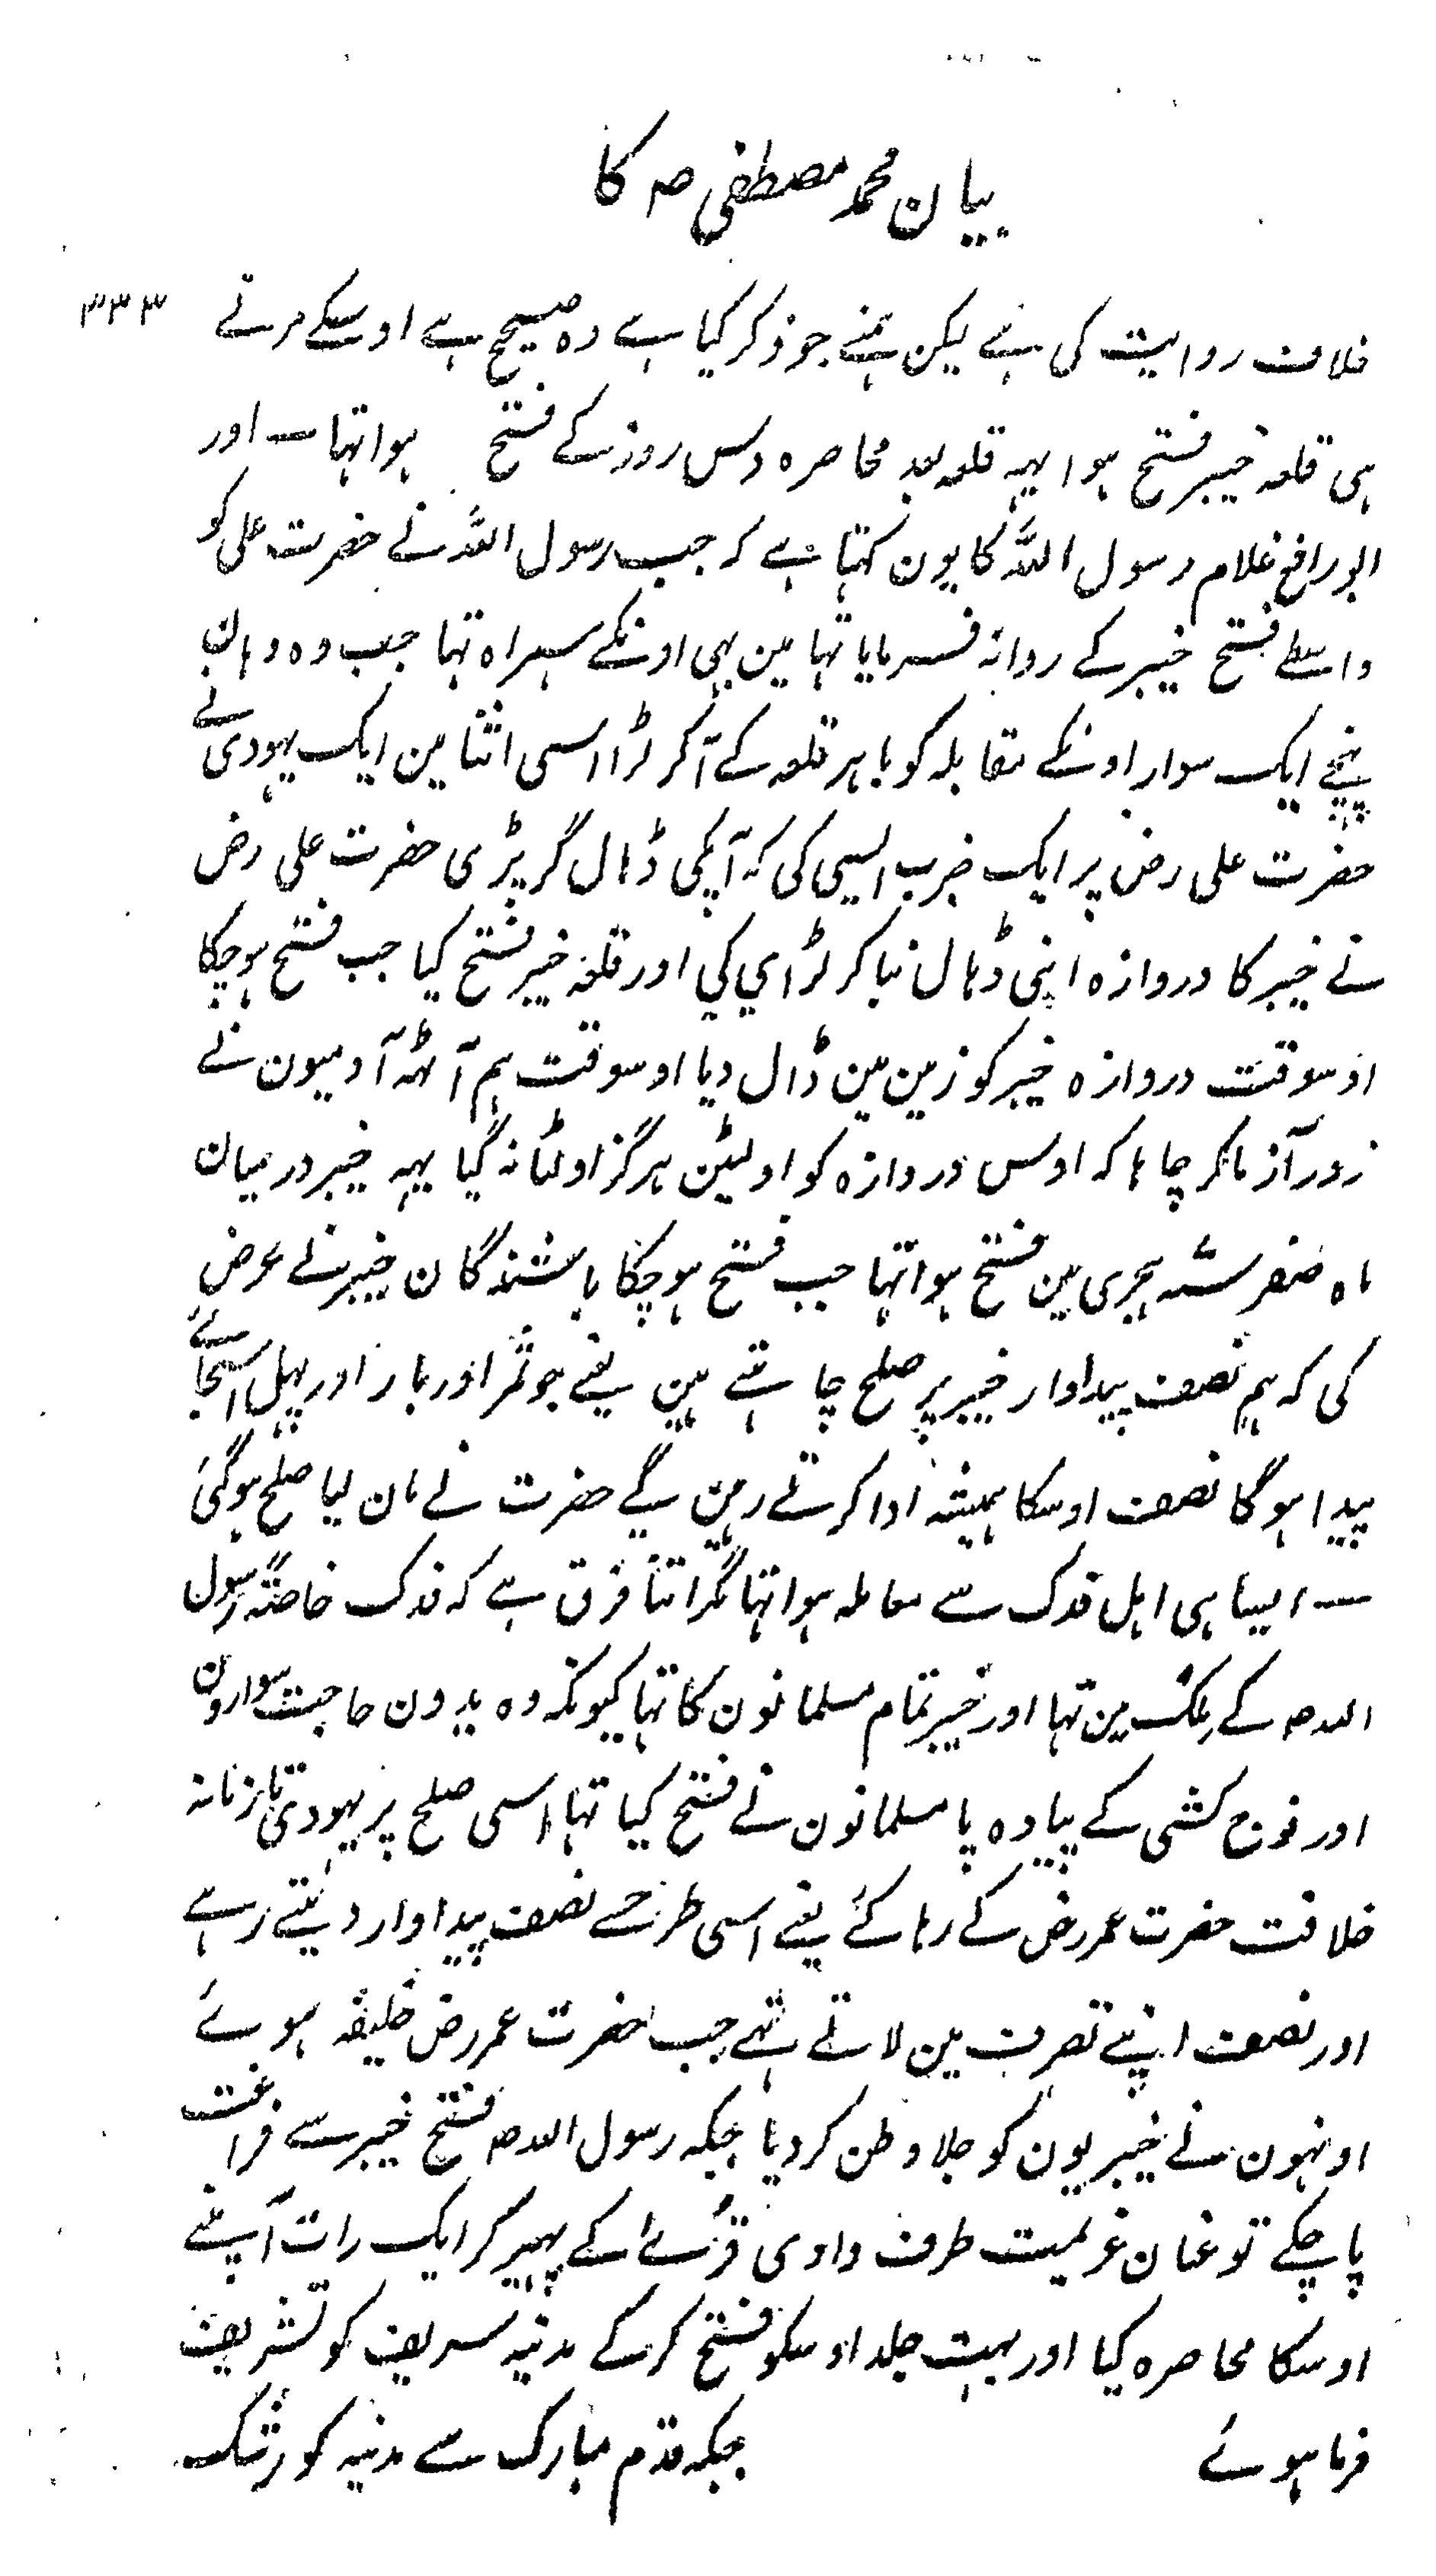 بیان محمد مصطفی صہ کا
۳۳۳
خلاف روایت کی ہے لیکن ہمنے جو ذکر کیا ہے وہ صیحح ہے اوسکے مرتے
ہی قلعہ خیبر فتح ہوا یہہ قلعہ بعد محاصرہ دس روز کے فتح ہوا تہا ـ اور
ابو رافع غلام رسول اللہ کا یون کہتا ہے کہ جب رسول اللہ نے حضرت علی کو
واسطے فتح خیبر کے روانہ فرمایا تہا مین بہی اونکے ہمراہ تہا جب وہ وہان
پہنچے ایک سوار اونکے مقابلہ کو باہر قلعہ کے آکر لڑا اسی اثنا مین ایک یہودی نے
حضرت علی رض پر ایک ضرب ایسی کی کہ آپکی ڈہال گر پڑی حضرت علی رض
نے خیبر کا دروازہ اپنی ڈہال بنا کر لڑای کی اور قلعہ خیبر فتح کیا جب فتح ہو چکا
اوسوقت دروازہ خیبر کو زمین مین ڈال دیا اوسوقت ہم آٹہہ آدمیون نے
زور آزماکر چاہا کہ اوس دروازہ کو اولٹین ہرگز اولٹا نہ گیا یہہ خیبر درمیان
ماہ صفر سنہ ہجری مین فتح ہوا تہا جب فتح ہو چکا باشندگان خیبر نے عرض
کی کہ ہم نصف پیداوار خیبر پر صلح چاہتے ہین یعنے جو ثمر اور بار اور پہل اسجائے
پیدا ہوگا نصف اوسکا ہمیشہ ادا کرتے رہین گے حضرت نے مان لیا صلح ہوگئی
ـ ایسا ہی اہل فدک سے معاملہ ہوا تہا مگر اتنا فرق ہے کہ فدک خاصۃً رسول
اللہ صہ کے ملک مین تہا اور خیبر تمام مسلمانون کا تہا کیونکہ وہ بدون حاجت سوارون
اور فوج کشی کے پیادہ پا مسلمانون نے فتح کیا تہا اسی صلح پر یہودی تا زمانہ
خلافت حضرت عمر رض کے رہا کئے یعنے اسی طرح سے نصف پیداوار دیتے رہے
اور نصف اپنے تصرف مین لاتے تہے جب حضرت عمر رض خلیفہ ہوے
اونہون نے خیبریون کو جلا وطن کر دیا جبکہ رسول اللہ صہ فتح خیبر سے فراغت
پا چکے تو عنان عزیمت طرف وادی قرے کے پہیر کر ایک رات آپنے
اوسکا محاصرہ کیا اور بہت جلد اوسکو فتح کر کے مدینہ شریف کو تشریف
فرما ہوئے جبکہ قدم مبارک سے مدینہ کو رشک